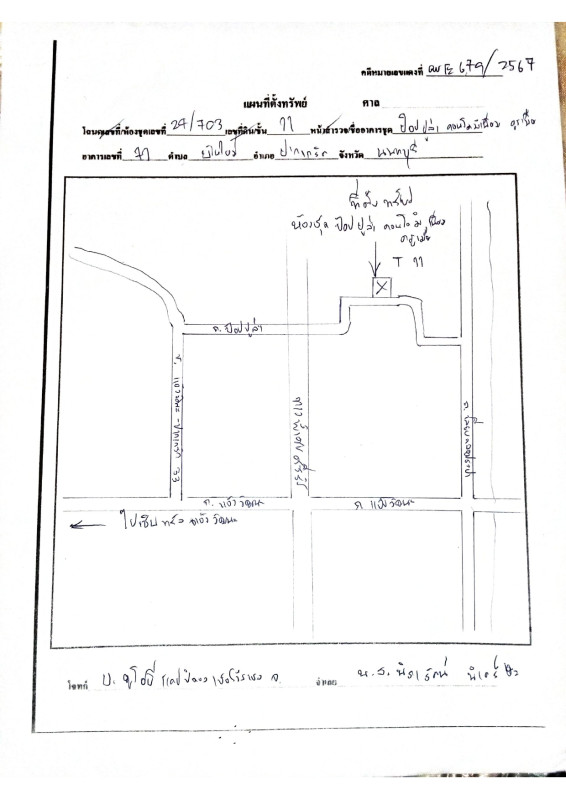 คดีหมายเลขแดงที่ ผบE 679/2567
แผนที่ตั้งทรัพย์ ศาล
โฉนดเลขที่/ห้องชุดเลขที่ 24/703 เลขที่ดิน/ชั้น 11 หน้าสำรวจ/ชื่ออาคารชุด ป๊อปปูล่า คอนโดมิเนียม
อาคารเลขที่ ตำบล บ้านใหม่ อำเภอ ปากเกร็ด จังหวัด นนทบุรี
ที่ตั้งทรัพย์
ห้องชุด ป๊อปปูล่า คอนโดมิเนียม
T 11
X
ถ. ป๊อปปูล่า
ซ. แจ้งวัฒนะ-ปากเกร็ด 33
ทางพิเศษศรีรัช
ถ. เลียบคลองประปา
ถ. แจ้งวัฒนะ ถ. แจ้งวัฒนะ
ไปเซ็นทรัล แจ้งวัฒนะ
โจทก์ บ. จำเลย